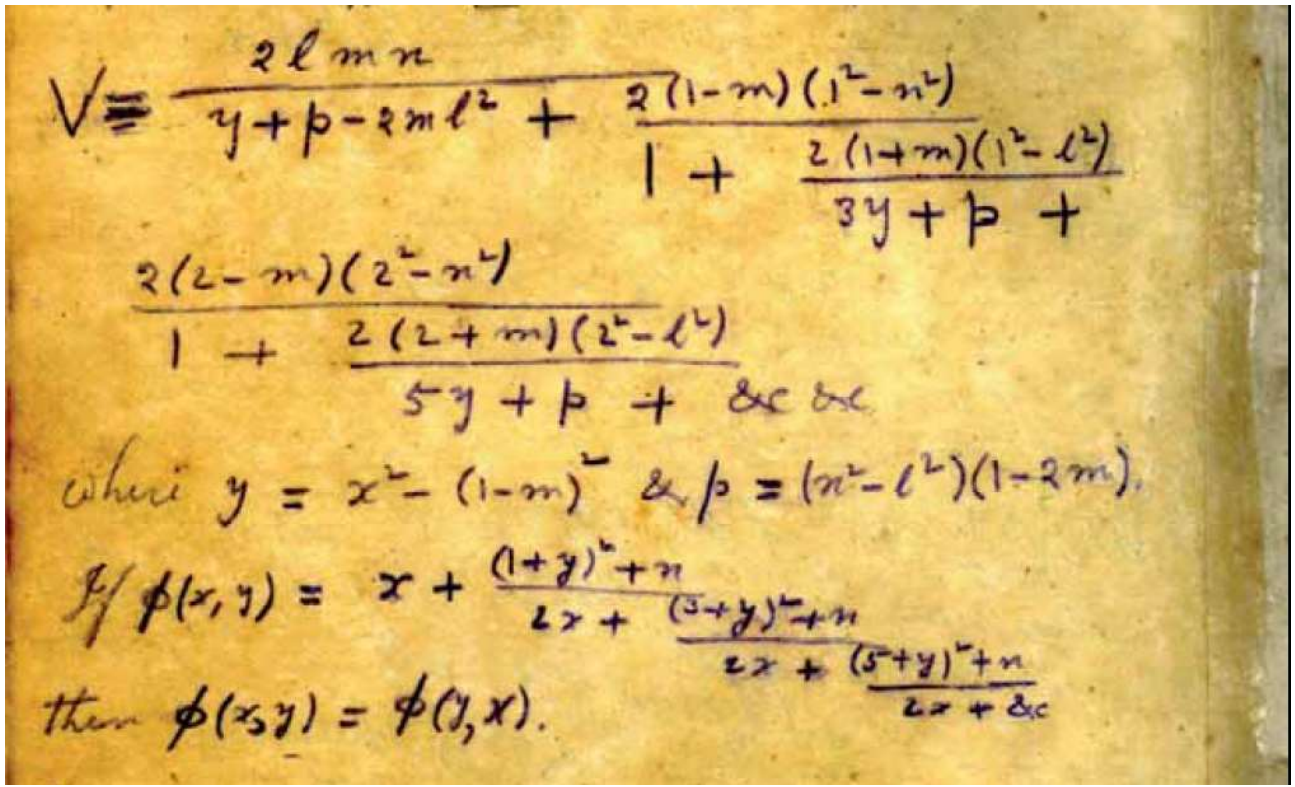 V = 2lmn / y + p - 2ml² + 2(1-m)(1²-n²) / 1 + 2(1+m)(1²-l²) / 3y + p +
2(2-m)(2²-n²) / 1 + 2(2+m)(2²-l²) / 5y + p + &c &c
where y = x² - (1-m)² & p = (n²-l²)(1-2m).
If φ(x,y) = x + (1+y)²+n / 2x + (3+y)²+n / 2x + (5+y)²+n / 2x + &c
then φ(x,y) = φ(y,x).